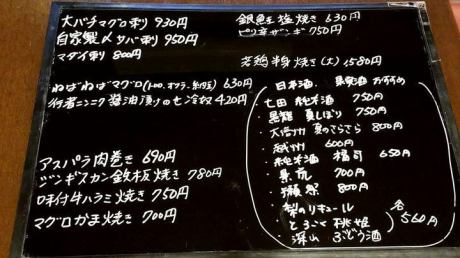 大バチマグロ刺 930円
自家製〆サバ刺 950円
マダイ刺 800円
ねばねばマグロ(トロロ、オクラ、納豆) 630円
行者ニンニク醤油漬けのせ冷奴 420円
アスパラ肉巻き 690円
ジンギスカン鉄板焼き 780円
味付牛ハラミ焼き 750円
マグロかま焼き 700円
銀鮭塩焼き 630円
ピリ辛ザンギ 750円
若鶏半身焼き(大) 1580円
日本酒 果実酒 おすすめ
・七田 純米酒 750円
・黒龍 夏しぼり 750円
・大信州 夏のさらさら 800円
・紀州 600円
・純米酒 福司 650円
・東荒 700円
・獺祭 800円
・梨のリキュール
・とろこく 桃姫
・深山 ぶどう酒
各560円